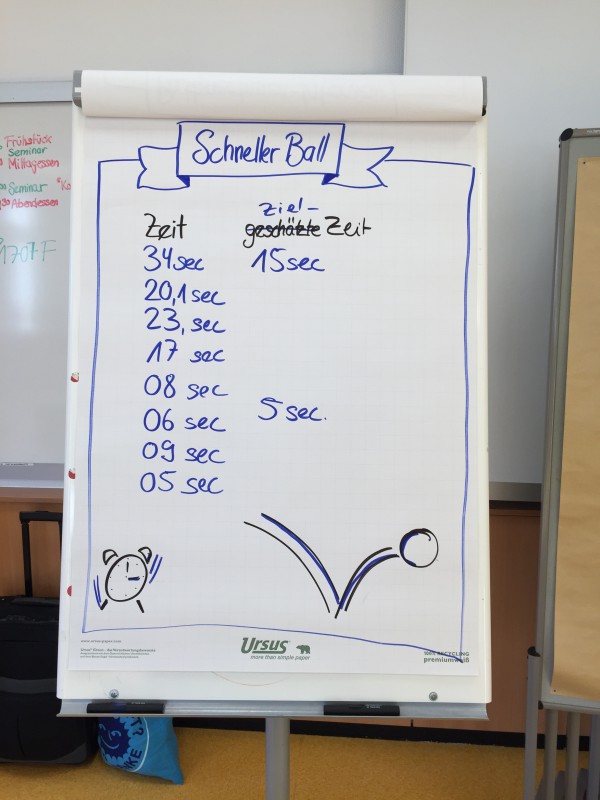 Schneller Ball
Zeit
Ziel-
geschätzte Zeit
34 sec
15 sec
20,1 sec
23, sec
17 sec
08 sec
5 sec.
06 sec
09 sec
05 sec
Frühstück
Seminar
Mittagessen
Seminar
Abendessen
www.ursus-paper.com
URSUS
more than simple paper
100% RECYCLING
premiumweiß